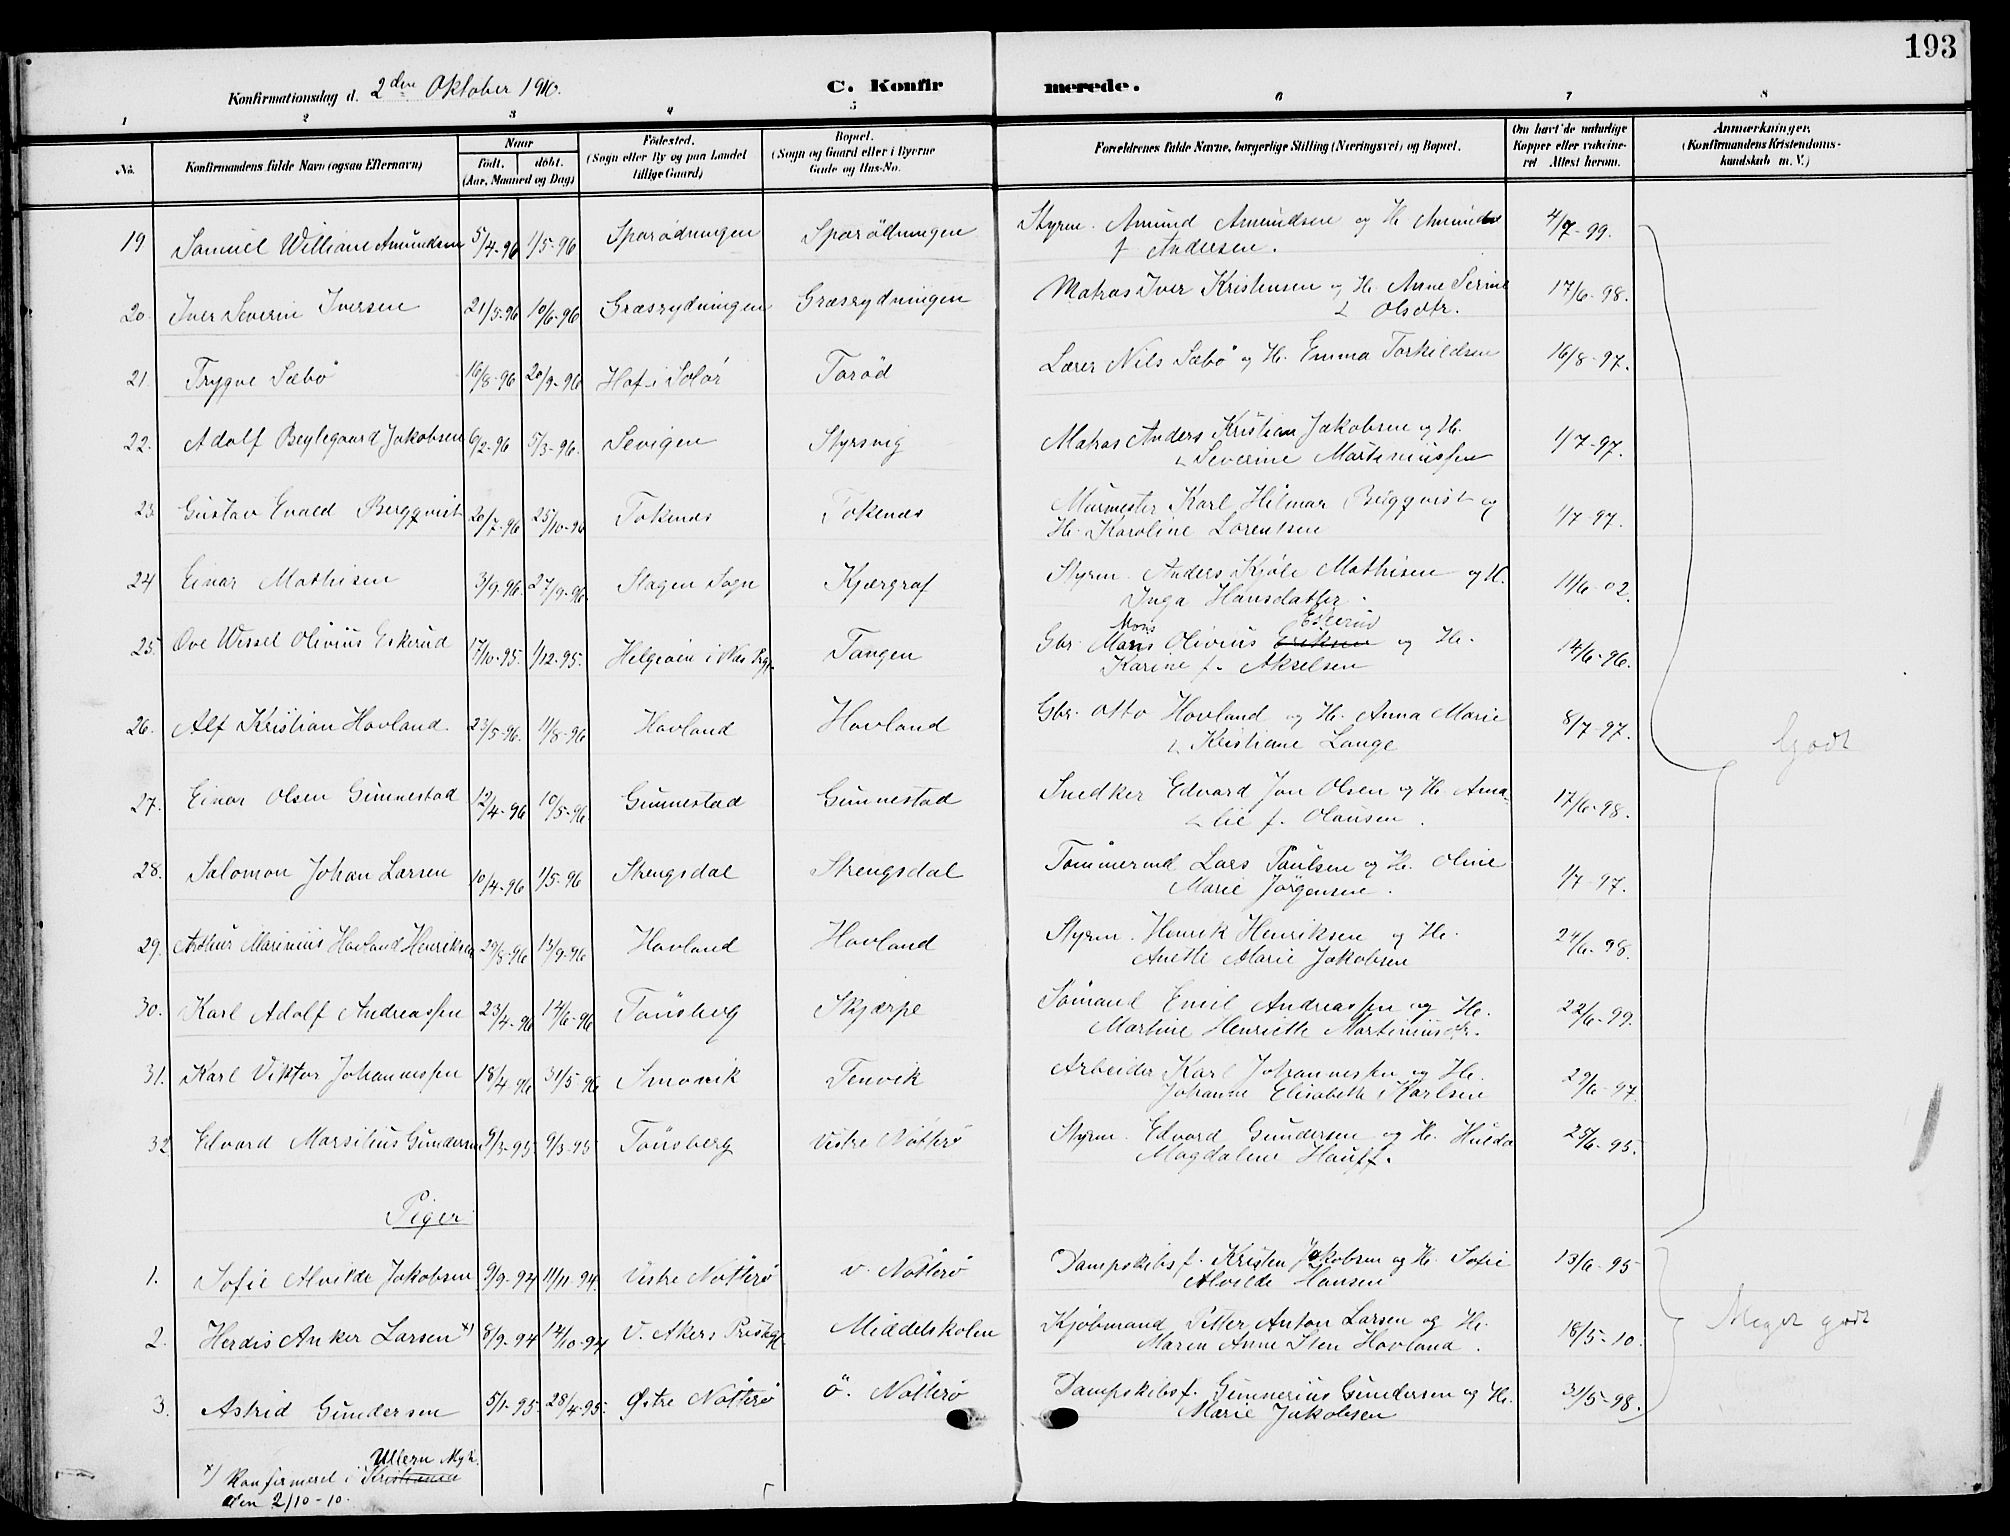 193
Konfirmationsdag d. 2den Oktober 1910.
C. Konfirmerede.
1 2 3 4 5 6 7 8
No. Konfirmandens fulde Navn (ogsaa Efternavn) Naar Født. døbt. (Aar, Maaned og Dag) Fødested. (Sogn eller By og paa Landet tillige Gaard) Bopæl. (Sogn og Gaard eller i Byerne Gade og Hus-No. Forældrenes fulde Navne, borgerlige Stilling (Næringsvei) og Bopæl. Om havt de naturlige Kopper eller vakcineret Attest herom. Anmærkninger. (Konfirmandens Kristendomskundskab m. V.)
19 Samuel William Amundsen 5/4-96 1/5-96 Sparödningen Sparödningen Styrm. Amund Amundsen og H. 4/7-99.
f Andersen.
20. Iver Severin Iversen 21/5-96 10/6-96 Græsrydningen Græsrydningen Matros Iver Kristensen og H. Anne Serine 17/6-98.
Olsdtr.
21. Trygve Sæbö 16/8-96 20/9-96 Hof i Solör Toröd Lærer Nils Sæbö og H. Emma Torkildsen 16/8-97.
22. Adolf Beylegaard Jakobsen 6/2-96 5/3-96. Sevigen Styrsvig Matros Anders Kristian Jakobsen og H. 1/7-97.
Severine Martiniussen
23. Gustav Evald Bergqvist 20/7-96 25/10-96 Tokenæs Tokenæs Murmester Karl Hilmar Bergqvist og 1/7-97.
H. Karoline Lorentsen
24 Einar Mathisen 3/9-96. 27/9-96 Slagen Sogn Kjærgraf Styrm. Anders Kjöle Mathisen og H. 11/6-02.
Inga Hansdatter.
Mons Eskerud
25. Ove Wessel Olivius Eskerud 17/10-95. 1/12-95. Helgøen i Næs Prgj. Tangen Gbr. Mons Olivius Eriksen og H. 14/6-96.
Karine f. Akselsen
26. Alf Kristian Hovland. 23/5-96. 11/8-96 Hovland Hovland Gbr. Otto Hovland og H. Anna Marie 8/7-97.
Kristiane Lange
Godt
27. Einar Olsen Gunnestad 12/4-96 10/5-96. Gunnestad Gunnestad Snedker Edvard Jon Olsen og H. Ama- 17/6-98.
lie f. Olausen.
28. Salomon Johan Larsen 10/4-96 1/5-96 Strengsdal Strengsdal Tömmermd Lars Paulsen og H. Oline 1/7-97.
Marie Jörgensen.
29. Arthur Marinius Hovland Henriksen 29/8-96 13/9-96 Hovland Hovland Styrm. Henrik Henriksen og H. 24/6-98.
Anette Marie Jakobsen
30. Karl Adolf Andreassen 23/4-96 14/6-96 Tönsberg Skjærpe Sömand Emil Andreassen og H. 22/6-99.
Martine Henriette Martiniusdtr.
31. Karl Viktor Johannessen 18/4-96 31/5-96 Smovik Tenvik Arbeider Karl Johannessen og H. 29/6-97.
Johanne Elisabeth Karlsen
32 Edvard Marsilius Gundersen 9/3-95. 9/3-95 Tönsberg Vestre Nötterö Styrm. Edvard Gundersen og H. Hulda 25/6-95.
Magdalene Hauff.
Piger
1. Sofie Alvilde Jakobsen 9/9-94 11/11-94. Vestre Nötterö v. Nötterö Dampskibsf. Kristen Jakobsen og H. Sofie 13/6-95
Alvilde Hansen
2. Herdis Anker Larsen x) 8/9-94 14/10-94 V. Akers Prestgj. Middelskolen Kjöbmand Petter Anton Larsen og H. 18/5-10.
Maren Anne Sten Hovland.
Meget godt
3. Astrid Gundersen 5/1-95. 28/4-95. Østre Nötterö Ö. Nötterö Dampskibsf. Gunnerius Gundersen og H. 31/5-98.
Marie Jakobsen
Ullern Mgh.
x) Konfirmeret i Kristiania
den 2/10-10.